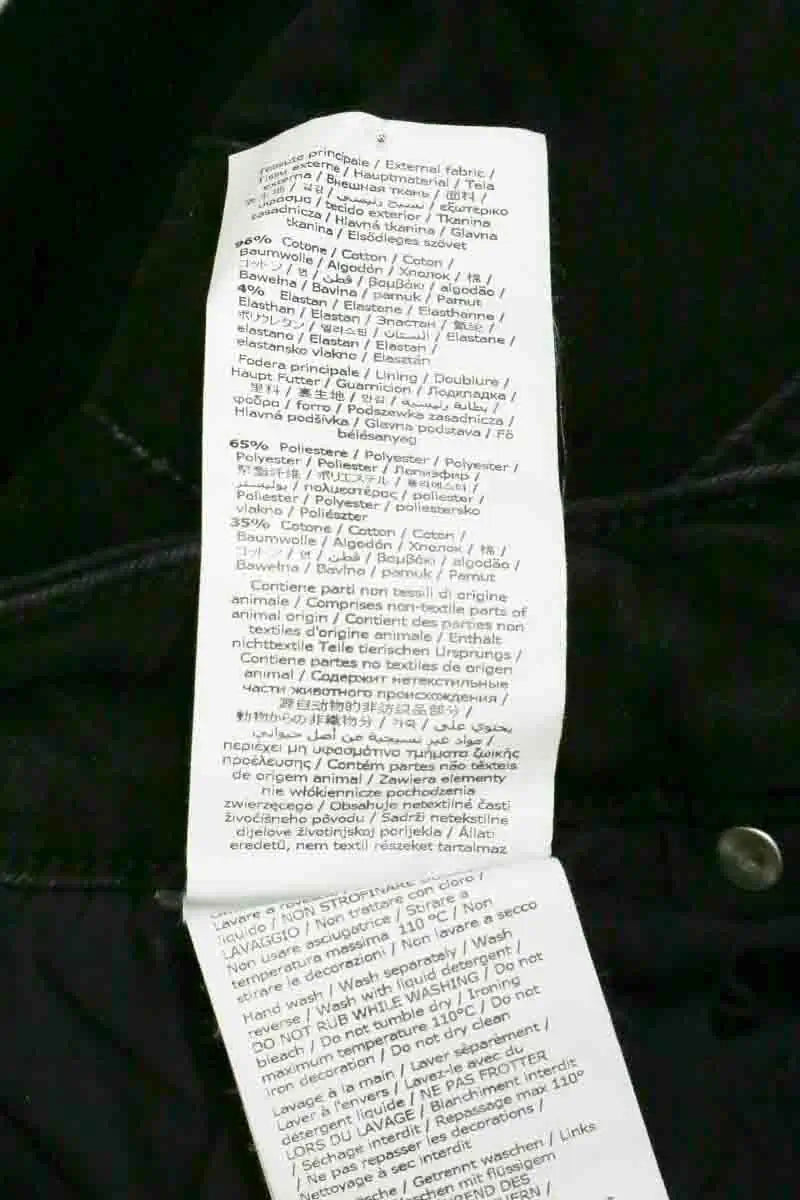 Tessuto principale / External fabric /
Tissu externe / Hauptmaterial / Tela
externa / Внешная ткань / 面料 /
表生地 / 겉감 / نسيج رئيسي / εξωτερικο
υφασμα / tecido exterior / Tkanina
zasadnicza / Hlavná tkanina / Glavna
tkanina / Elsődleges szövet
96% Cotone / Cotton / Coton /
Baumwolle / Algodón / Хлопок / 棉 /
コットン / 면 / قطن / βαμβάκι / algodão /
Bawełna / Bavlna / pamuk / Pamut
4% Elastan / Elastane / Elasthanne /
Elasthan / Elastan / Эластан / 氨纶 /
ポリウレタン / 엘라스틴 / الستان / Elastane /
elastano / Elastan / Elastan /
elastansko vlakno / Elasztán
Fodera principale / Lining / Doublure /
Haupt Futter / Guarnicion / Подкладка /
里料 / 裏生地 / 안감 / بطانة رئيسية /
φοδρα / forro / Podszewka zasadnicza /
Hlavná podšívka / Glavna podstava / Fő
bélésanyag
65% Poliestere / Polyester / Polyester /
Polyester / Poliester / Полиэфир /
聚酯纤维 / ポリエステル / 폴리에스터 /
بوليستر / πολυεστέρας / poliester /
Poliester / Polyester / poliestersko
vlakno / Poliészter
35% Cotone / Cotton / Coton /
Baumwolle / Algodón / Хлопок / 棉 /
コットン / 면 / قطن / βαμβάκι / algodão /
Bawełna / Bavlna / pamuk / Pamut
Contiene parti non tessili di origine
animale / Comprises non-textile parts of
animal origin / Contient des parties non
textiles d'origine animale / Enthält
nichttextile Teile tierischen Ursprungs /
Contiene partes no textiles de origen
animal / Содержит нетекстильные
части животного происхождения /
源自动物的非纺织品部分 /
動物からの非織物分 / 가죽 / يحتوي على
مواد غير نسيجية من أصل حيواني /
περιέχει μη υφασμάτινα τμήματα ζωικής
προέλευσης / Contém partes não têxteis
de origem animal / Zawiera elementy
nie włókiennicze pochodzenia
zwierzęcego / Obsahuje netextilné časti
živočíšneho pôvodu / Sadrži netekstilne
dijelove životinjskog porijekla / Állati
eredetű, nem textil részeket tartalmaz
Lavare a
liquido / NON STROFINARE
LAVAGGIO / Non trattare con cloro /
Non usare asciugatrice / Stirare a
temperatura massima 110 °C / Non
stirare le decorazioni / Non lavare a secco
Hand wash / Wash separately / Wash
reverse / Wash with liquid detergent /
DO NOT RUB WHILE WASHING / Do not
bleach / Do not tumble dry / Ironing
maximum temperature 110°C / Do not
iron decoration / Do not dry clean
Lavage à la main / Laver séparément /
Laver à l'envers / Lavez-le avec du
détergent liquide / NE PAS FROTTER
LORS DU LAVAGE / Blanchiment interdit
/ Séchage interdit / Repassage max 110°
/ Ne pas repasser les decorations /
Nettoyage à sec interdit
/ Getrennt waschen / Links
mit flüssigem
DES